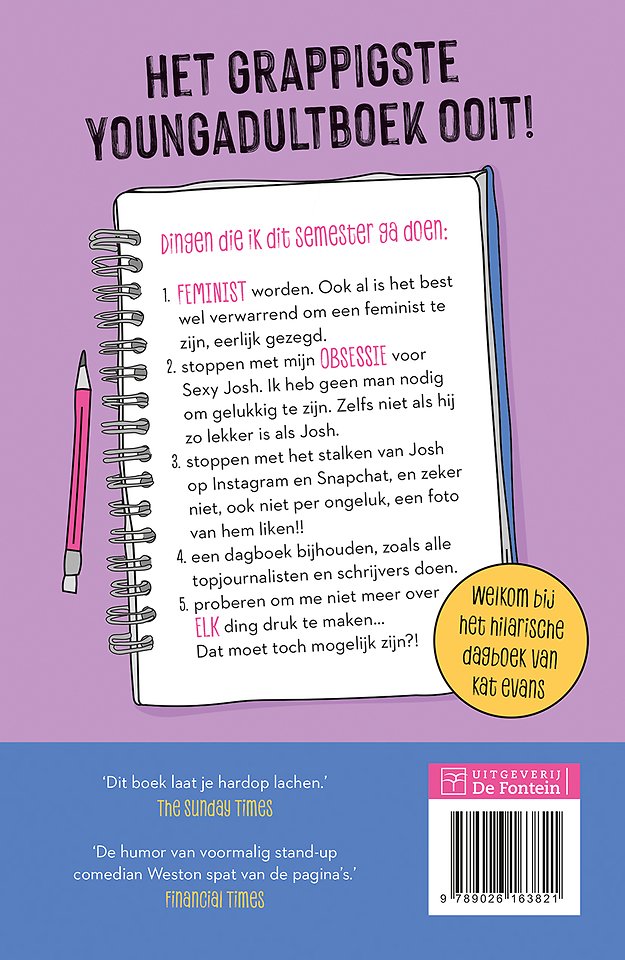 HET GRAPPIGSTE
YOUNGADULTBOEK OOIT!
Dingen die ik dit semester ga doen:
1. FEMINIST worden. Ook al is het best
wel verwarrend om een feminist te
zijn, eerlijk gezegd.
2. stoppen met mijn OBSESSIE voor
Sexy Josh. Ik heb geen man nodig
om gelukkig te zijn. Zelfs niet als hij
zo lekker is als Josh.
3. stoppen met het stalken van Josh
op Instagram en Snapchat, en zeker
niet, ook niet per ongeluk, een foto
van hem liken!!
4. een dagboek bijhouden, zoals alle
topjournalisten en schrijvers doen.
5. proberen om me niet meer over
ELK ding druk te maken...
Dat moet toch mogelijk zijn?!
Welkom bij
het hilarische
dagboek van
Kat Evans
‘Dit boek laat je hardop lachen.’
The Sunday Times
‘De humor van voormalig stand-up
comedian Weston spat van de pagina’s.’
Financial Times
UITGEVERIJ
De Fontein
9 789026 163821